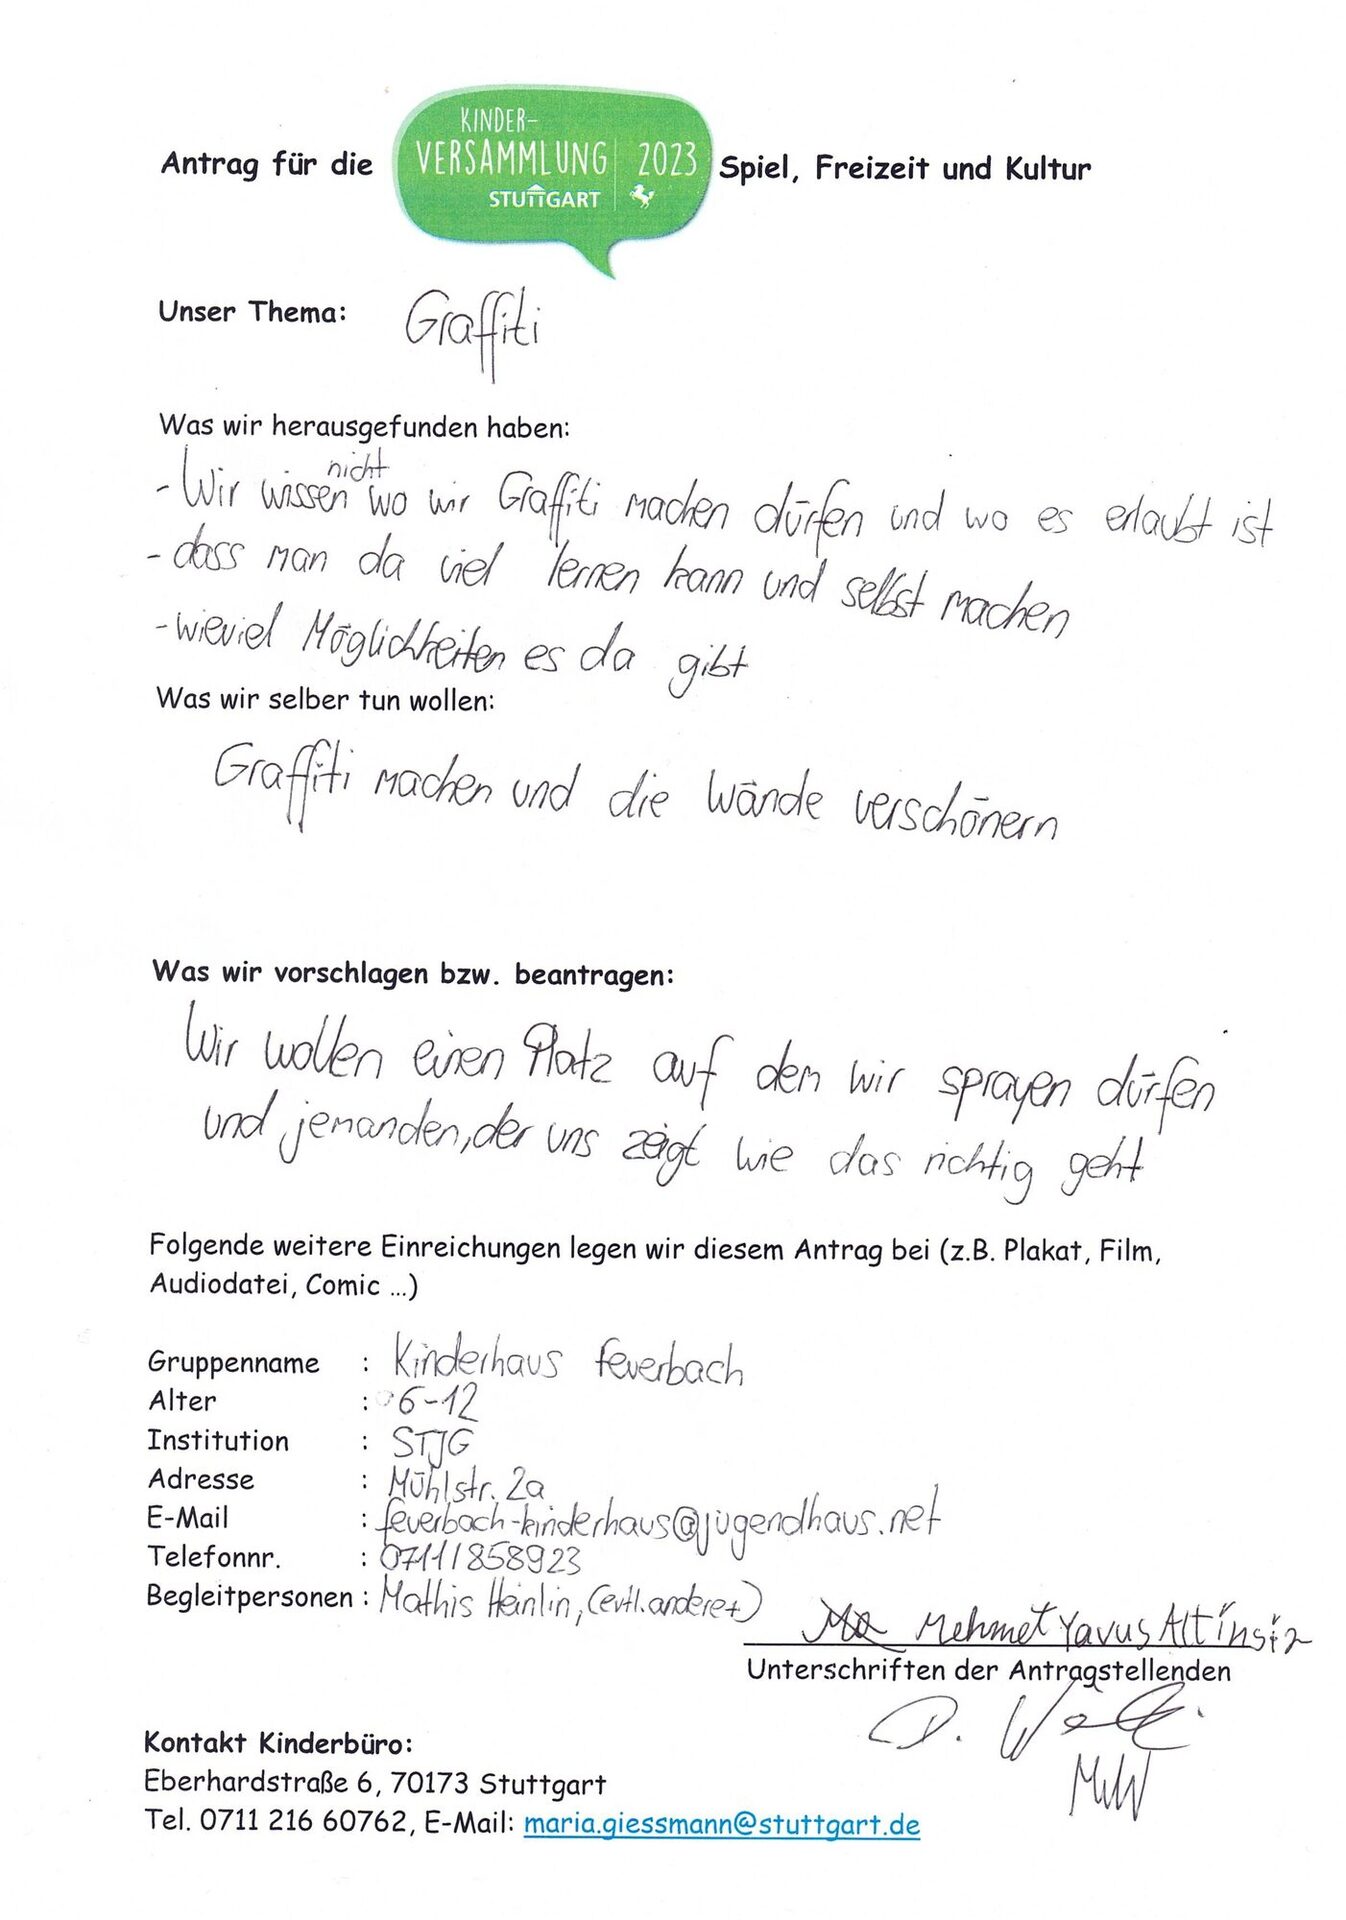 Antrag für die KINDER-
VERSAMMLUNG 2023
STUTTGART
Spiel, Freizeit und Kultur
Unser Thema: Graffiti
Was wir herausgefunden haben:
- Wir wissen nicht wo wir Graffiti machen dürfen und wo es erlaubt ist
- dass man da viel lernen kann und selbst machen
- wieviel Möglichkeiten es da gibt
Was wir selber tun wollen:
Graffiti machen und die Wände verschönern
Was wir vorschlagen bzw. beantragen:
Wir wollen einen Platz auf dem wir sprayen dürfen
und jemanden, der uns zeigt wie das richtig geht
Folgende weitere Einreichungen legen wir diesem Antrag bei (z.B. Plakat, Film,
Audiodatei, Comic ...)
Gruppenname : Kinderhaus Feuerbach
Alter : 6-12
Institution : STJG
Adresse : Mühlstr. 2a
E-Mail : feuerbach-kinderhaus@jugendhaus.net
Telefonnr. : 0711/858923
Begleitpersonen : Mathis Heinlin, (evtl. andere+)
Mehmet Yavus Altinsiz
Unterschriften der Antragstellenden
Kontakt Kinderbüro:
Eberhardstraße 6, 70173 Stuttgart
Tel. 0711 216 60762, E-Mail: maria.giessmann@stuttgart.de